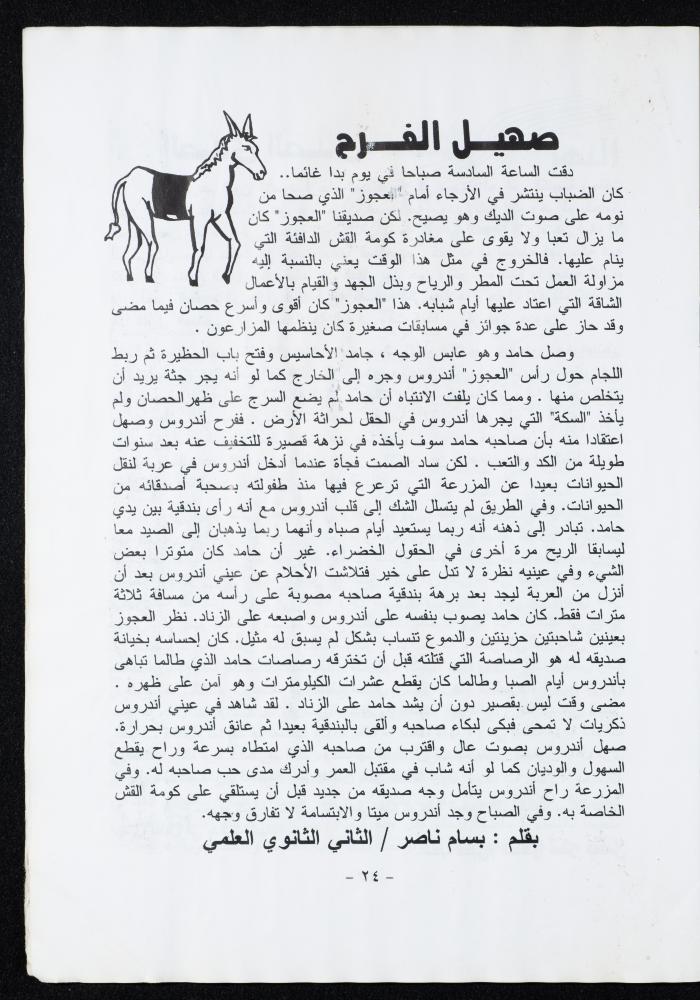 صهيل الفرح
دقت الساعة السادسة صباحا في يوم بدا غائما..
كان الضباب ينتشر في الأرجاء أمام "العجوز" الذي صحا من
نومه على صوت الديك وهو يصيح. لكن صديقنا "العجوز" كان
ما يزال تعبا ولا يقوى على مغادرة كومة القش الدافئة التي
ينام عليها. فالخروج في مثل هذا الوقت يعني بالنسبة إليه
مزاولة العمل تحت المطر والرياح وبذل الجهد والقيام بالأعمال
الشاقة التي اعتاد عليها أيام شبابه. هذا "العجوز" كان أقوى وأسرع حصان فيما مضى
وقد حاز على عدة جوائز في مسابقات صغيرة كان ينظمها المزارعون .
وصل حامد وهو عابس الوجه ، جامد الأحاسيس وفتح باب الحظيرة ثم ربط
اللجام حول رأس "العجوز" أندروس وجره إلى الخارج كما لو أنه يجر جثة يريد أن
يتخلص منها . ومما كان يلفت الانتباه أن حامد لم يضع السرج على ظهر الحصان ولم
يأخذ "السكة" التي يجرها أندروس في الحقل لحراثة الأرض . ففرح أندروس وصهل
اعتقادا منه بأن صاحبه حامد سوف يأخذه في نزهة قصيرة للتخفيف عنه بعد سنوات
طويلة من الكد والتعب . لكن ساد الصمت فجأة عندما أدخل أندروس في عربة لنقل
الحيوانات بعيدا عن المزرعة التي ترعرع فيها منذ طفولته بصحبة أصدقائه من
الحيوانات. وفي الطريق لم يتسلل الشك إلى قلب أندروس مع أنه رأى بندقية بين يدي
حامد. تبادر إلى ذهنه أنه ربما يستعيد أيام صباه وأنهما ربما يذهبان إلى الصيد معا
ليسابقا الريح مرة أخرى في الحقول الخضراء. غير أن حامد كان متوترا بعض
الشيء وفي عينيه نظرة لا تدل على خير فتلاشت الأحلام عن عيني أندروس بعد أن
أنزل من العربة ليجد بعد برهة بندقية صاحبه مصوبة على رأسه من مسافة ثلاثة
مترات فقط. كان حامد يصوب بنفسه على أندروس واصبعه على الزناد. نظر العجوز
بعينين شاحبتين حزينتين والدموع تنساب بشكل لم يسبق له مثيل. كان إحساسه بخيانة
صديقه له هو الرصاصة التي قتلته قبل أن تخترقه رصاصات حامد الذي طالما تباهى
بأندروس أيام الصبا وطالما كان يقطع عشرات الكيلومترات وهو آمن على ظهره .
مضى وقت ليس بقصير دون أن يشد حامد على الزناد . لقد شاهد في عيني أندروس
ذكريات لا تمحى فبكى لبكاء صاحبه وألقى بالبندقية بعيدا ثم عانق أندروس بحرارة.
صهل أندروس بصوت عال واقترب من صاحبه الذي امتطاه بسرعة وراح يقطع
السهول والوديان كما لو أنه شاب في مقتبل العمر وأدرك مدى حب صاحبه له. وفي
المزرعة راح أندروس يتأمل وجه صديقه من جديد قبل أن يستلقي على كومة القش
الخاصة به. وفي الصباح وجد أندروس ميتا والابتسامة لا تفارق وجهه.
بقلم : بسام ناصر / الثاني الثانوي العلمي
- ٢٤ -